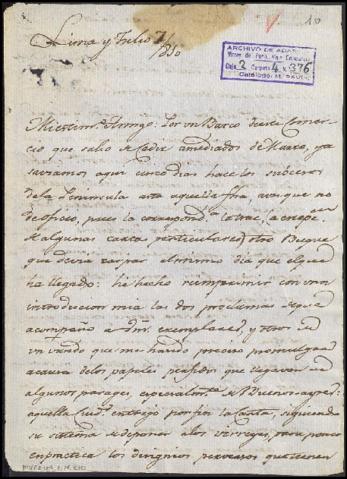 10
Lima y Julio 7/810
ARCHIVO DE ABAS
Caja 2 Carpeta 4 n 376
Mi estim.º Amigo. Por un Barco de este Comer-
cio que salio de Cadiz a mediados de Marzo, ya
saviamos aqui cinco dias hace los sucesos
de la Peninsula asta aquella fha, aunque no
de oficio, pues la correspond.ª la trae, a excepc.on
de algunas cartas particulares, otro Buque
que devia zarpar al mismo dia que el que
ha llegado: he hecho reimprimir con una
introduccion mia las dos proclamas de que
acompaño a Vm. exemplares, y otro de
un vando que me ha sido preciso promulgar
acerca de los papeles que llegavan de
algunos parages, especialm.te de Buenos ayres:
aquella Ciud. entrego por fin la Carta, siguiendo
su sistema de deponer a los virreyes, para poner
en practica los designios perversos que tienen